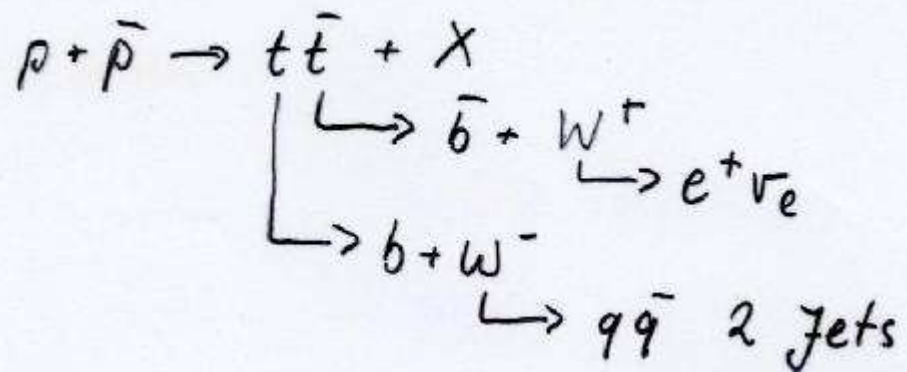 p + p̄ → t t̄ + X
→ b̄ + W⁺
→ e⁺ νₑ
→ b + W⁻
→ q q̄ 2 Jets